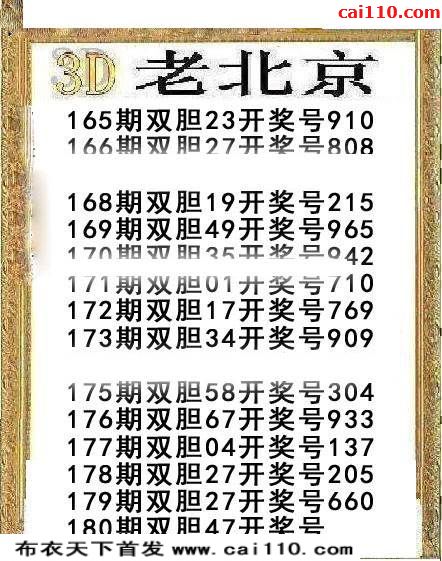 cai110.com
3D 老北京
165期双胆23开奖号910
166期双胆27开奖号808
168期双胆19开奖号215
169期双胆49开奖号965
170期双胆35开奖号942
171期双胆01开奖号710
172期双胆17开奖号769
173期双胆34开奖号909
175期双胆58开奖号304
176期双胆67开奖号933
177期双胆04开奖号137
178期双胆27开奖号205
179期双胆27开奖号660
180期双胆47开奖号
布衣天下首发 www.cai110.com